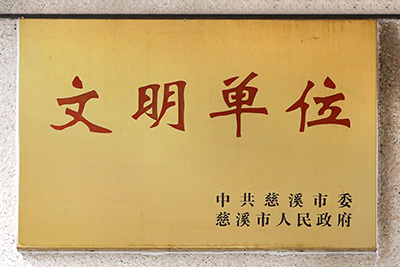 文明单位
中共慈溪市委
慈溪市人民政府